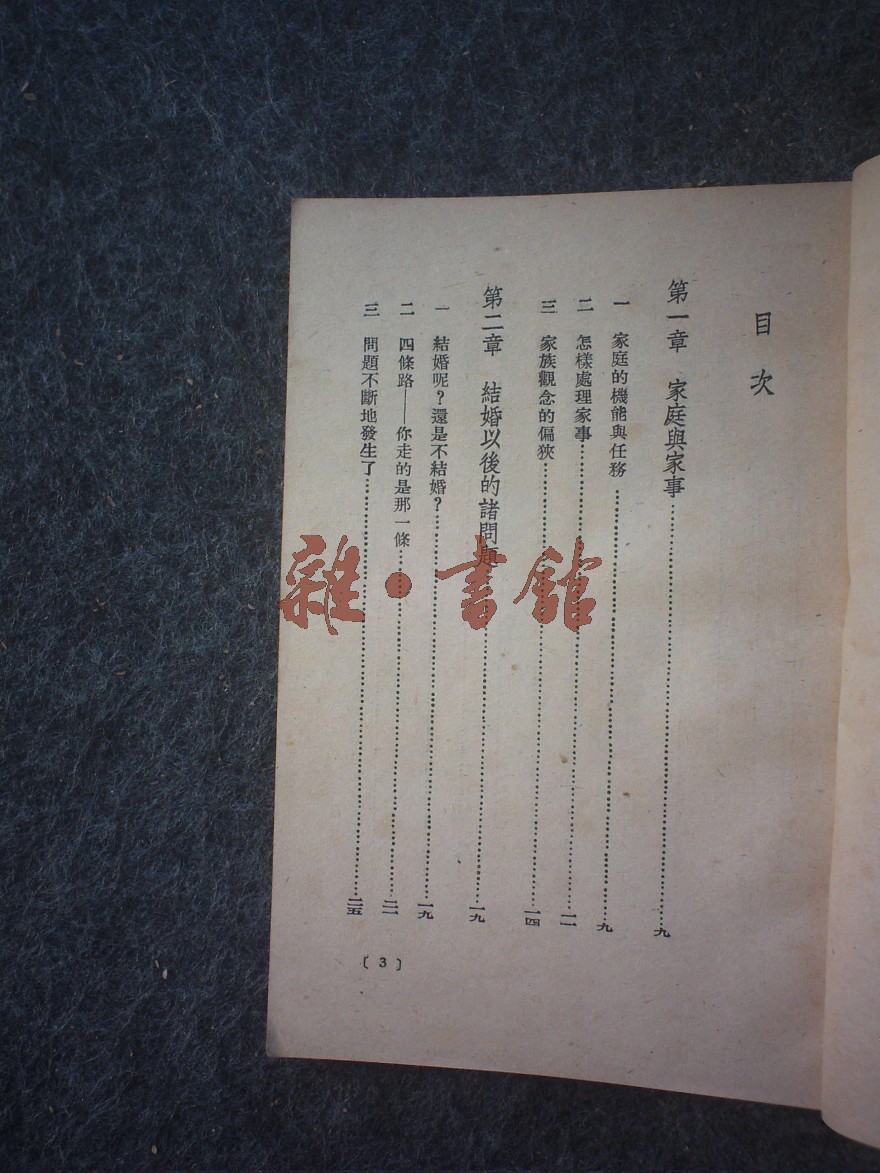 目次
第一章　家庭與家事……九
一　家庭的機能與任務……九
二　怎樣處理家事……一一
三　家族觀念的偏狹……一四
第二章　結婚以後的諸問題……一九
一　結婚呢？還是不結婚？……一九
二　四條路——你走的是那一條……二一
三　問題不斷地發生了……二五
〔3〕
雜·書館